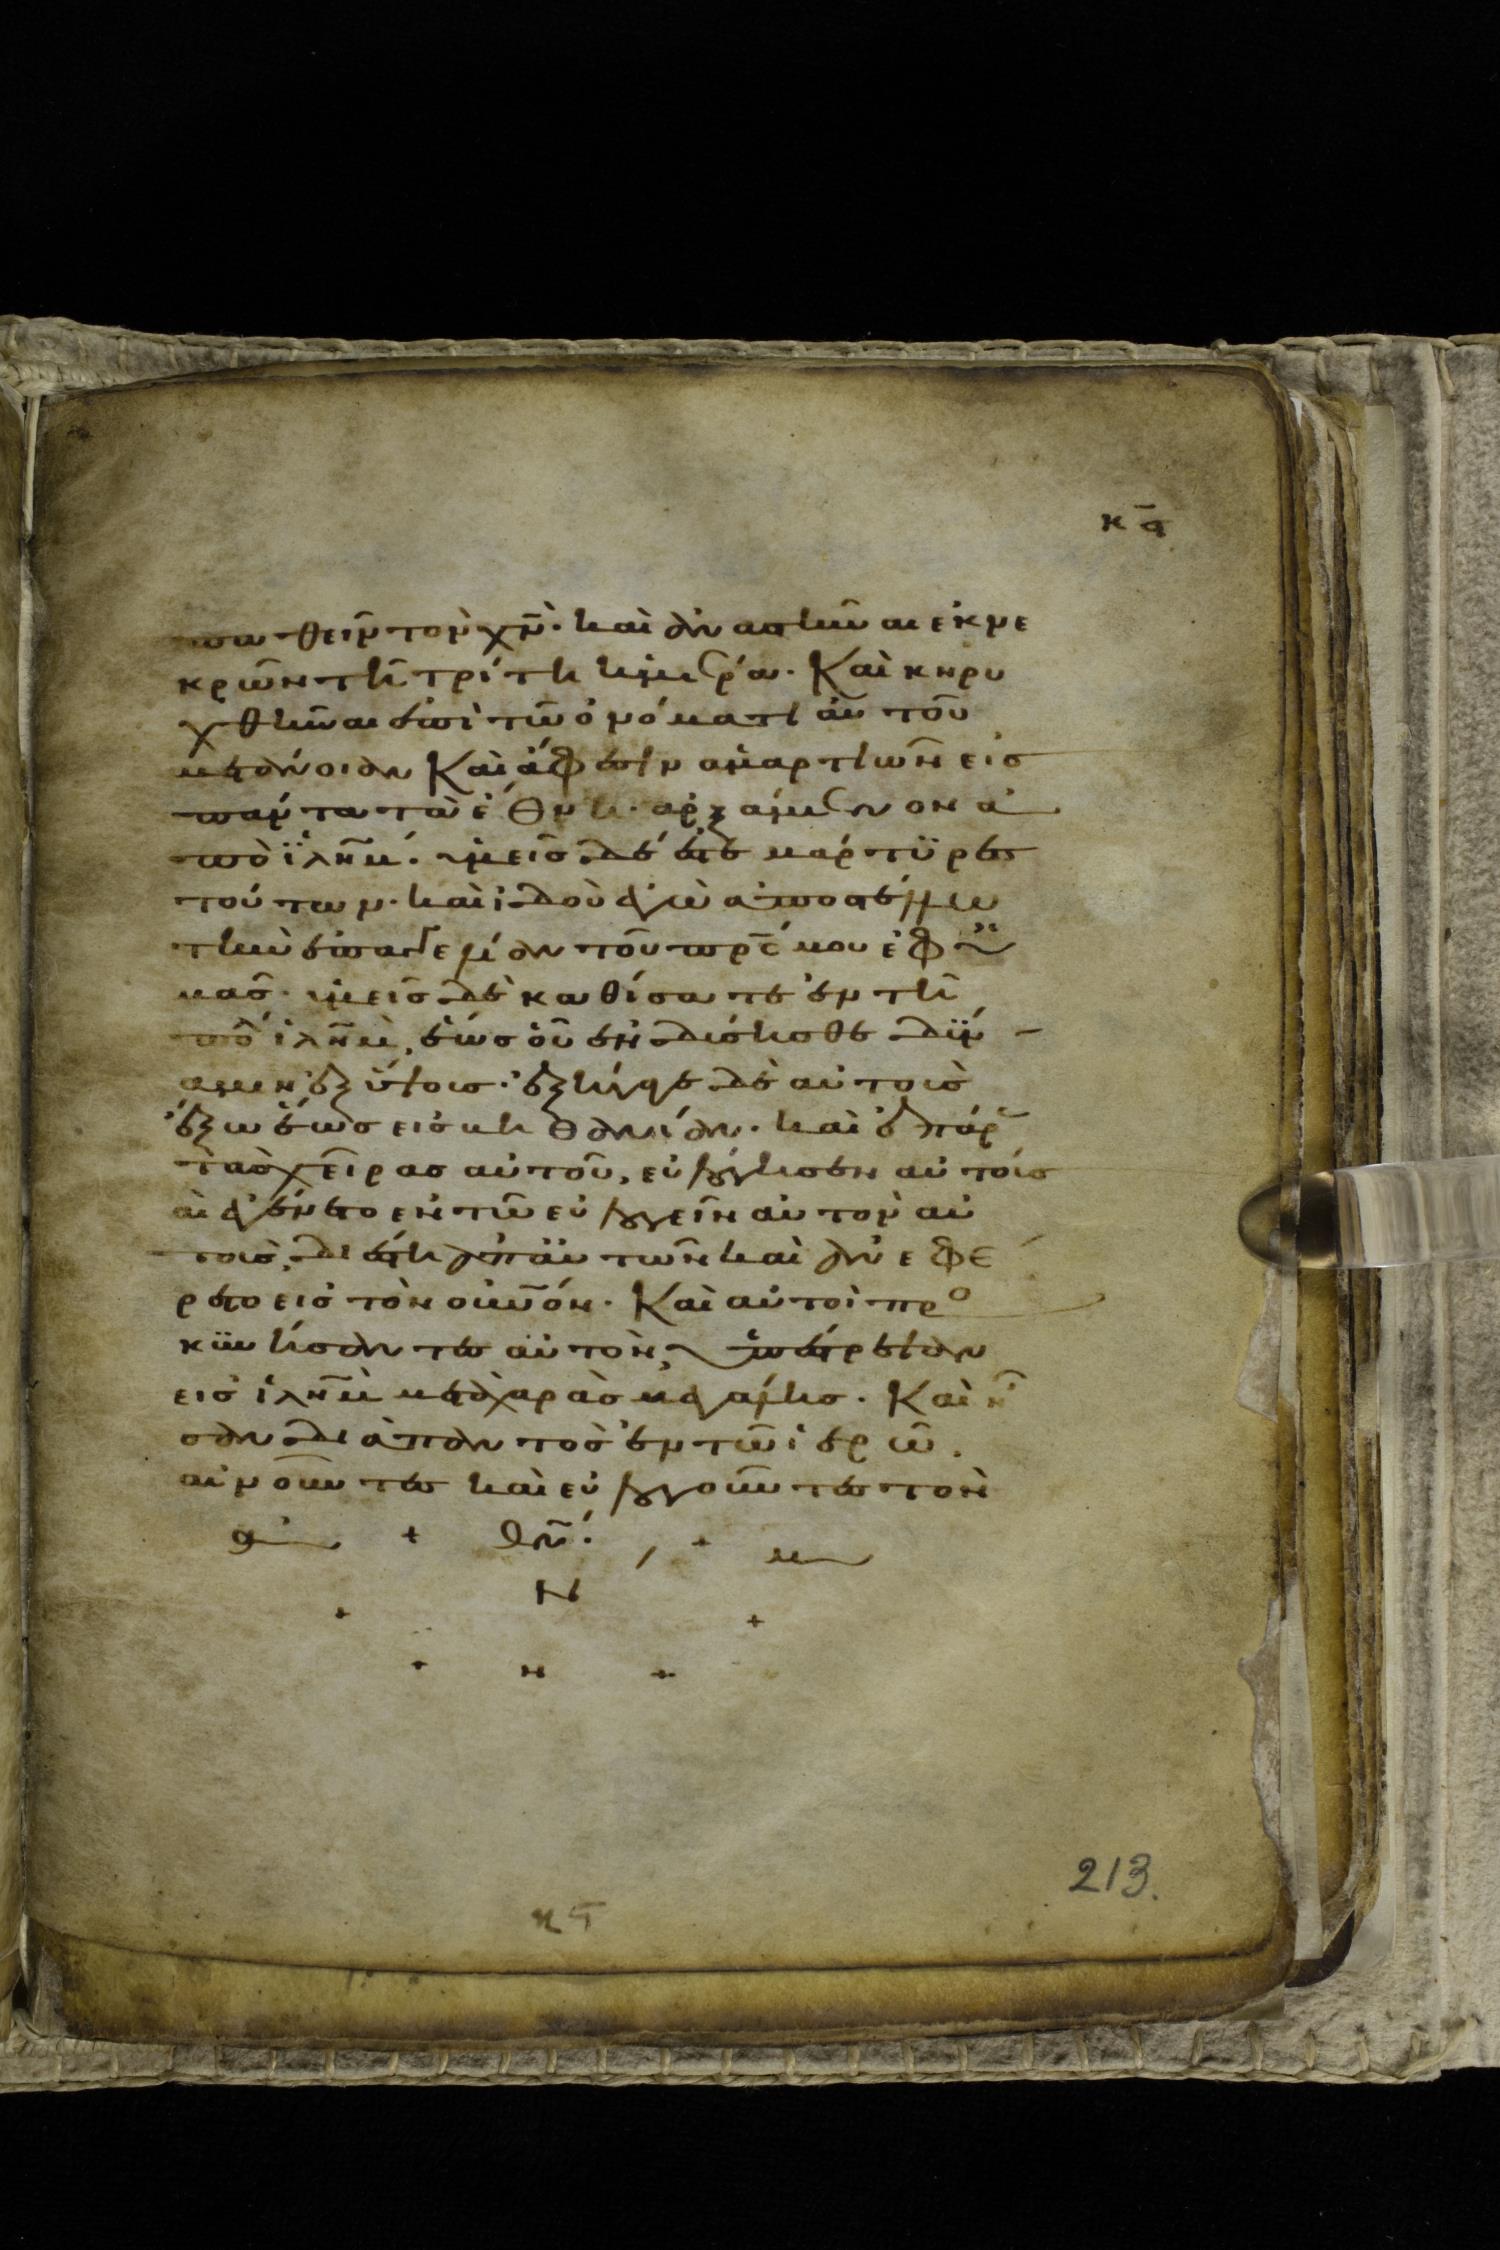 κϛ
παθεῖν τὸν χν̅· καὶ ἀναστῆναι ἐκ νε
κρῶν τῆ τρίτη ἡμέρα. Καὶ κηρυ
χθῆναι ἐπὶ τῶ ὀνόματι αὐτοῦ
μετάνοιαν Καὶ ἄφεσιν ἁμαρτιῶν εἰς
πάντα τὰ ἔθνη. ἀρξάμενον ἀ
πὸ ϊλη̅μ. ὑμεῖς δέ ἐστε μάρτϋρες
τούτων. καὶ ἰδοὺ ἐγὼ ἀποστέλλω
τὴν ἐπαγγελίαν τοῦ πρ̅ς μου ἐφ ὑ
μᾶς. ὑμεῖς δὲ καθίσατε ἐν τῆ
πό ἰλη̅μ, ἕως οὗ ἐνδύσησθε δϋν
αμιν ἐξ ὕψους. ἐξήγαγε δὲ αὐτοὺς
ἔξω ἕως εἰς βηθανίαν. καὶ ἐπάρ
τὰς χεῖρας αὐτοῦ, εὐλόγησεν αὐτούς
καὶ ἐγένετο ἐν τῶ εὐλογεῖν αὐτὸν αὐ
τοὺς, διέστη ἀπ αὐτῶν καὶ ἀνεφέ
ρετο εἰς τὸν οὐν̅όν. Καὶ αὐτοὶ προ
σκϋνήσαντες αὐτὸν, ὑπέστρεψαν
εἰς ἰλη̅μ μετὰ χαρᾶς μεγάλης. Καὶ ἦ
σαν διάπαντος ἐν τῶ ἱερῶ.
αἰνοῦντες καὶ εὐλογοῦντες τὸν
α + θν̅. + μ
Η
+ +
+ ν +
213.
κϛ